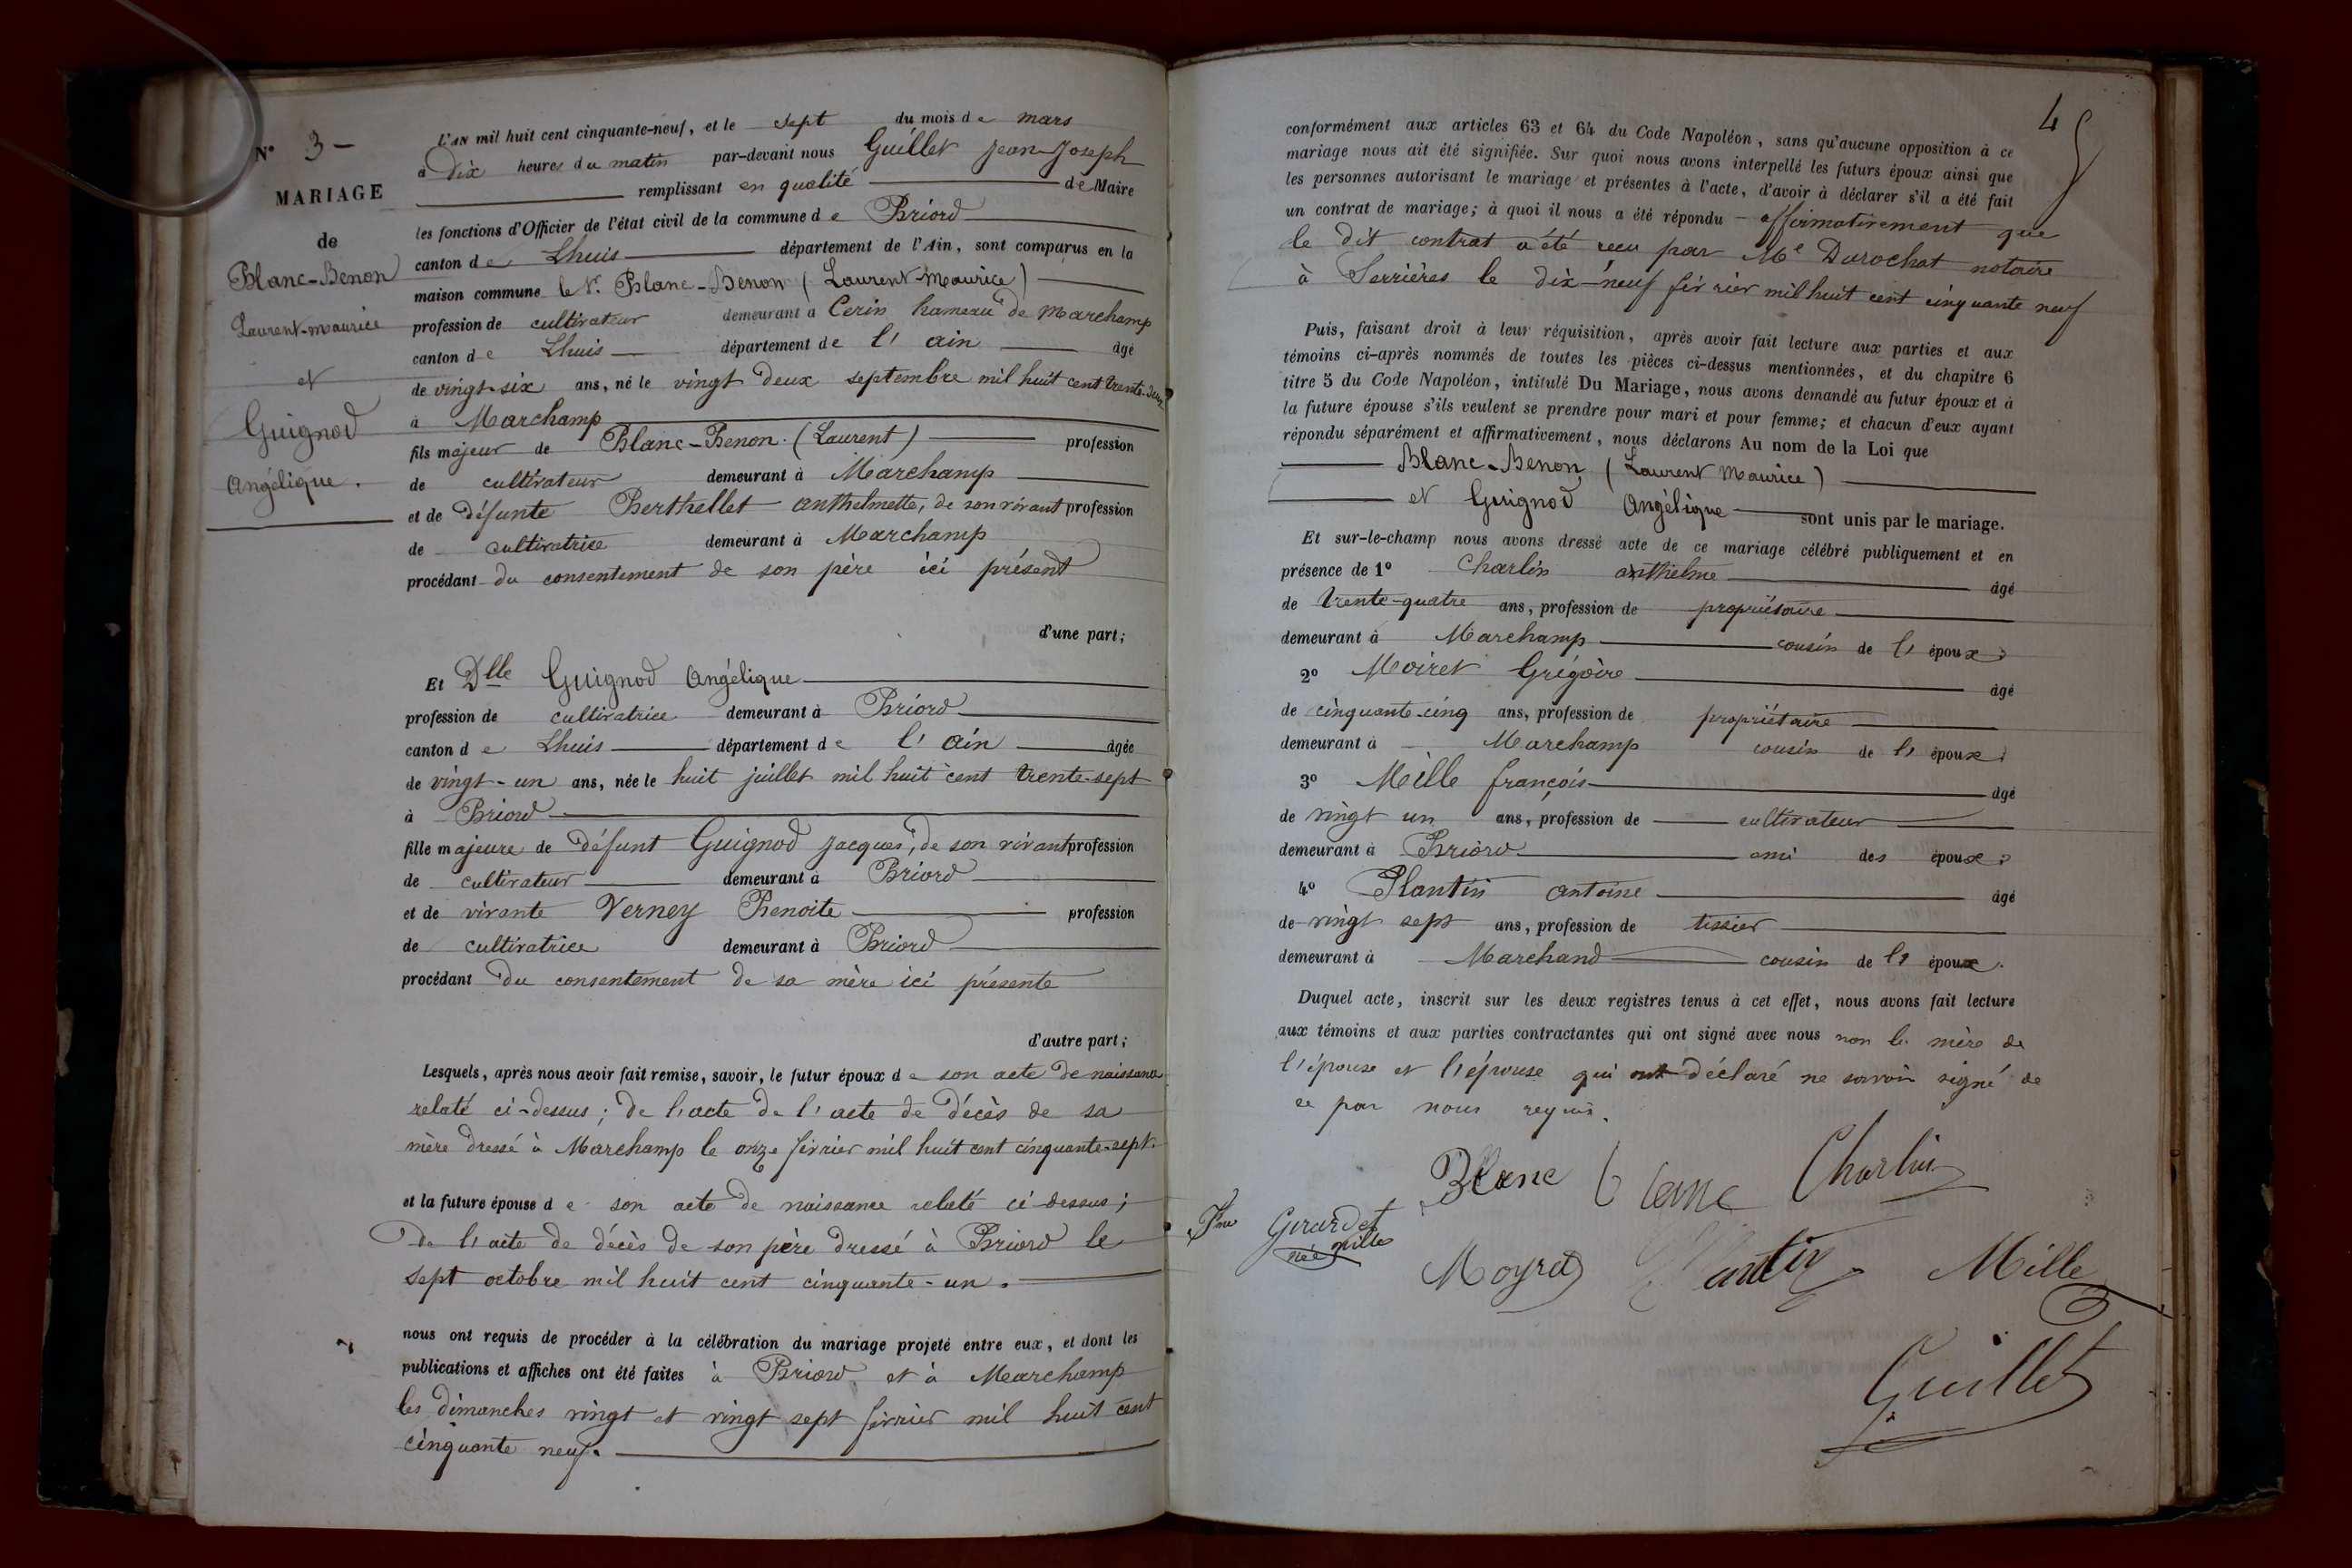 N° 3 —
MARIAGE
de
Blanc-Benon
Laurent-maurice
et
Guignod
Angélique.
L'AN mil huit cent cinquante-neuf, et le sept du mois de mars
à Dix heures du matin par-devant nous Guillet Jean-Joseph
remplissant en qualité de Maire
les fonctions d'Officier de l'état civil de la commune de Briord
canton de Lhuis département de l'Ain, sont comparus en la
maison commune le Sr. Blanc-Benon (Laurent-Maurice)
profession de cultivateur demeurant à Cerin hameau de Marchamp
canton de Lhuis département de l'ain âgé
de vingt-six ans, né le vingt deux septembre mil huit cent trente-deux
à Marchamp
fils majeur de Blanc-Benon (Laurent) profession
de cultivateur demeurant à Marchamp
et de défunte Berthellet anthelmette, de son vivant profession
de cultivatrice demeurant à Marchamp
procédant du consentement de son père ici présent
d'une part;
Et Dlle Guignod Angélique
profession de cultivatrice demeurant à Briord
canton de Lhuis département de l'ain âgée
de vingt-un ans, née le huit juillet mil huit cent trente-sept
à Briord
fille majeure de défunt Guignod Jacques, de son vivant profession
de cultivateur demeurant à Briord
et de vivante Verney Benoite profession
de cultivatrice demeurant à Briord
procédant du consentement de sa mère ici présente
d'autre part;
Lesquels, après nous avoir fait remise, savoir, le futur époux de son acte de naissance
relaté ci-dessus; de l'acte de l'acte de décès de sa
mère dressé à Marchamp le onze février mil huit cent cinquante-sept.
et la future épouse de son acte de naissance relaté ci-dessus;
De l'acte de décès de son père dressé à Briord le
sept octobre mil huit cent cinquante-un.
nous ont requis de procéder à la célébration du mariage projeté entre eux, et dont les
publications et affiches ont été faites à Briord et à Marchamp
les dimanches vingt et vingt sept février mil huit cent
cinquante neuf.
4
conformément aux articles 63 et 64 du Code Napoléon, sans qu'aucune opposition à ce
mariage nous ait été signifiée. Sur quoi nous avons interpellé les futurs époux ainsi que
les personnes autorisant le mariage et présentes à l'acte, d'avoir à déclarer s'il a été fait
un contrat de mariage; à quoi il nous a été répondu — affirmativement que
le dit contrat a été reçu par Me Durochat notaire
à Serrières le dix-neuf février mil huit cent cinquante neuf
Puis, faisant droit à leur réquisition, après avoir fait lecture aux parties et aux
témoins ci-après nommés de toutes les pièces ci-dessus mentionnées, et du chapitre 6
titre 5 du Code Napoléon, intitulé Du Mariage, nous avons demandé au futur époux et à
la future épouse s'ils veulent se prendre pour mari et pour femme; et chacun d'eux ayant
répondu séparément et affirmativement, nous déclarons Au nom de la Loi que
Blanc-Benon (Laurent Maurice)
et Guignod Angélique sont unis par le mariage.
Et sur-le-champ nous avons dressé acte de ce mariage célébré publiquement et en
présence de 1° Charlin anthelme âgé
de trente-quatre ans, profession de propriétaire
demeurant à Marchamp cousin de l'époux;
2° Moiret Grégoire âgé
de cinquante-cinq ans, profession de propriétaire
demeurant à Marchamp cousin de l'époux;
3° Mille françois âgé
de vingt un ans, profession de cultivateur
demeurant à Briord ami des époux;
4° Plantin antoine âgé
de vingt sept ans, profession de tissier
demeurant à Marchand cousin de l'époux.
Duquel acte, inscrit sur les deux registres tenus à cet effet, nous avons fait lecture
aux témoins et aux parties contractantes qui ont signé avec nous non la mère de
l'épouse et l'épouse qui ont déclaré ne savoir signé de
ce par nous requis.
Blanc Blanc Charlin
Girardet
née Mille
Moyret Plantin Mille
Guillet